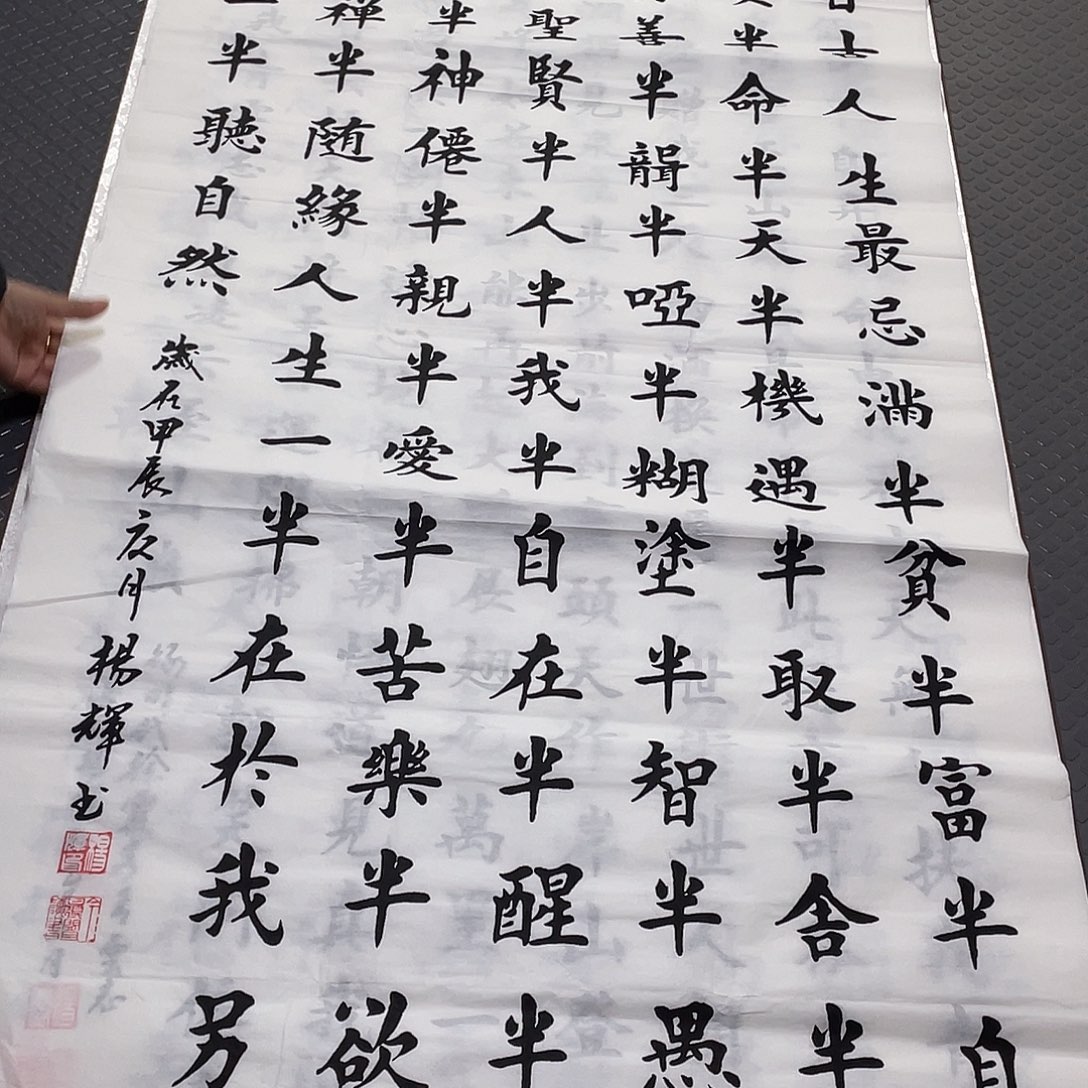 古人生最忌滿半貧半富半自
半命半天半機遇半取半舍半
善半聾半啞半糊塗半智半愚
聖賢半人半我半自在半醒半
半神僊半親半愛半苦樂半欲
禪半随緣人生一半在於我另
一半聽自然
歲在甲辰月楊輝书